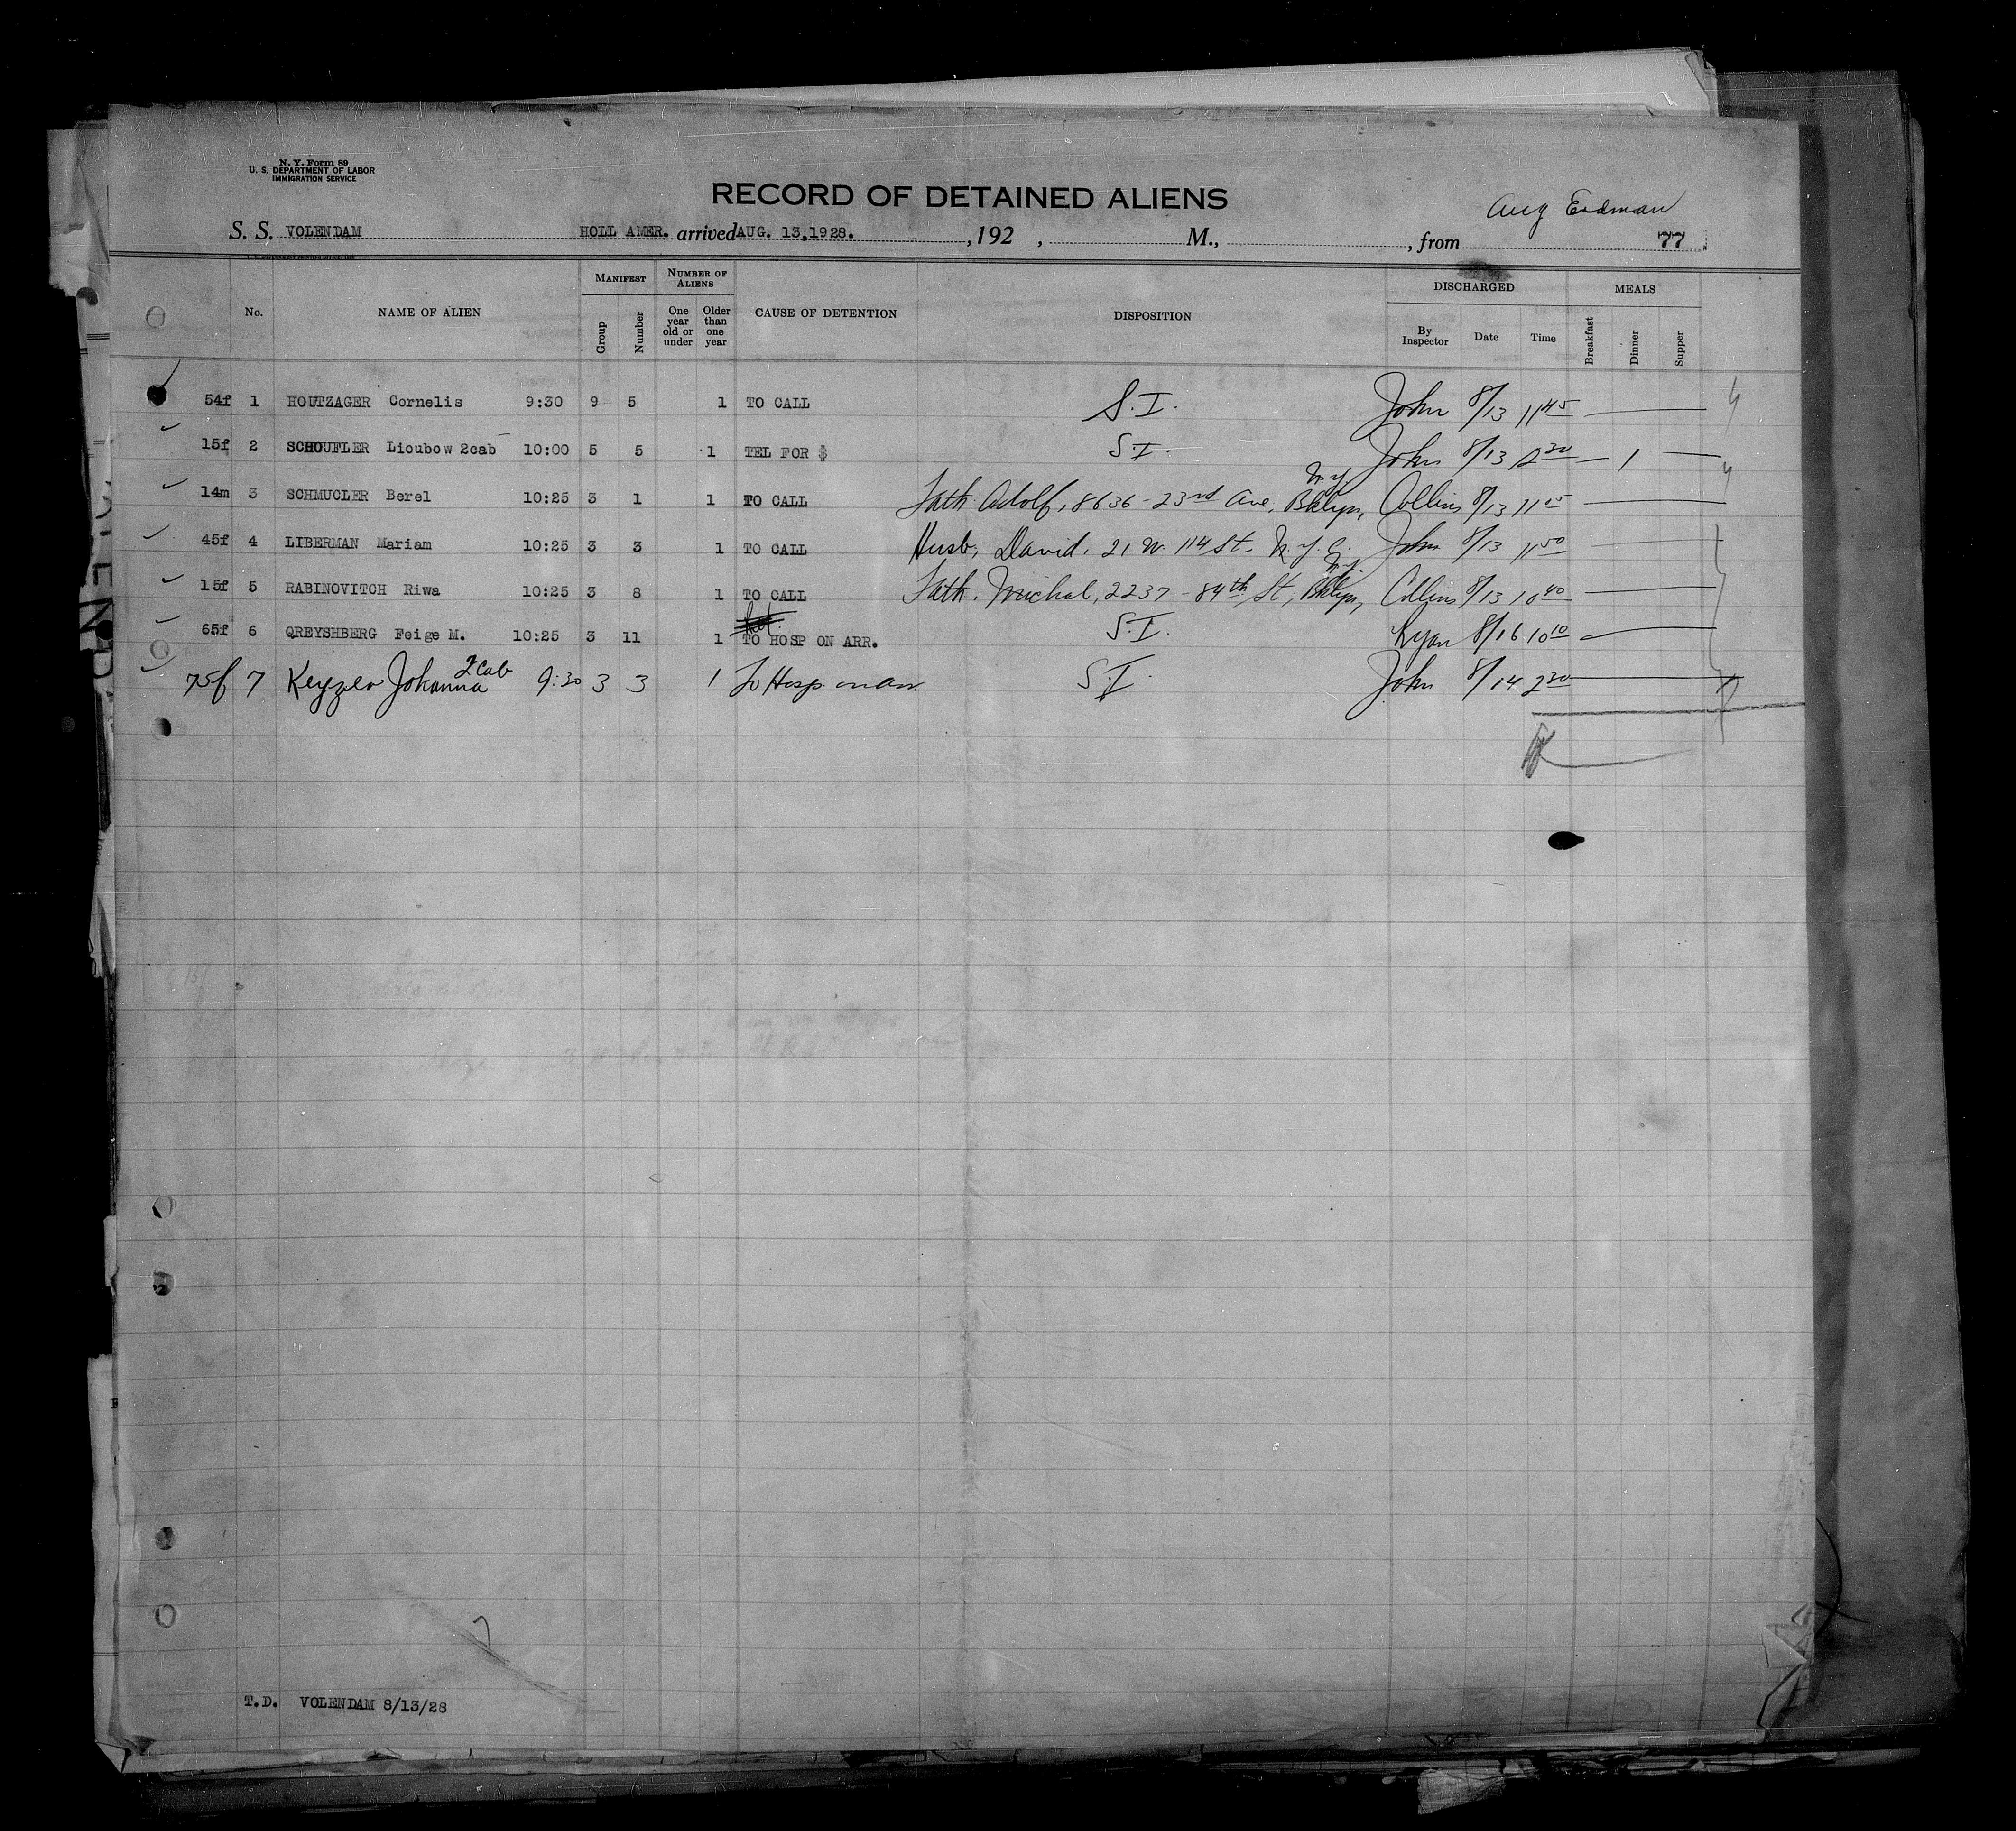 N. Y. Form 89
U. S. DEPARTMENT OF LABOR
IMMIGRATION SERVICE
RECORD OF DETAINED ALIENS
Aug Erdman
S. S. VOLENDAM HOLL AMER. arrived AUG. 13,1928. , 192 , M., , from 77
No. NAME OF ALIEN MANIFEST Group Number NUMBER OF ALIENS One year old or under Older than one year CAUSE OF DETENTION DISPOSITION DISCHARGED By Inspector Date Time MEALS Breakfast Dinner Supper
54f 1 HOUTZAGER Cornelis 9:30 9 5 1 TO CALL S.I. John 8/13 11 45
15f 2 SCHOUFLER Lioubow 2cab 10:00 5 5 1 TEL FOR $ S.I. John 8/13 2 30 1
14m 3 SCHMUCLER Berel 10:25 3 1 1 TO CALL Fath. Adolf, 8636 - 23rd Ave, Bklyn, N.Y. Collins 8/13 11 15
45f 4 LIBERMAN Mariam 10:25 3 3 1 TO CALL Husb, David. 21 W. 114 St. N.Y.C. John 8/13 11 50
15f 5 RABINOVITCH Riwa 10:25 3 8 1 TO CALL Fath. Michal, 2237 - 84th St, Bklyn, N.Y. Collins 8/13 10 40
65f 6 QREYSHBERG Feige M. 10:25 3 11 1 TO HOSP ON ARR. S.I. Ryan 8/16 10 10
75f 7 Keyzer Johanna 2 Cab 9:30 3 3 1 To Hosp on arr. S.I. John 8/14 2 30
7
T.D. VOLENDAM 8/13/28